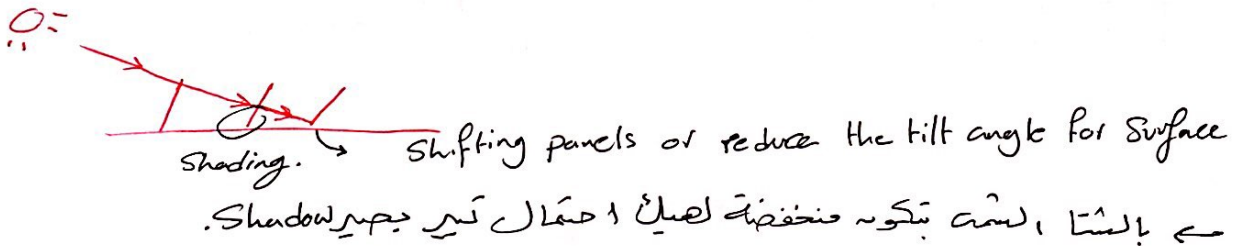 Shading.
Shifting panels or reduce the tilt angle for Surface
← بالشتا الشمس بتكون منخفضة لهيك احتمال كبير يصير Shadow.